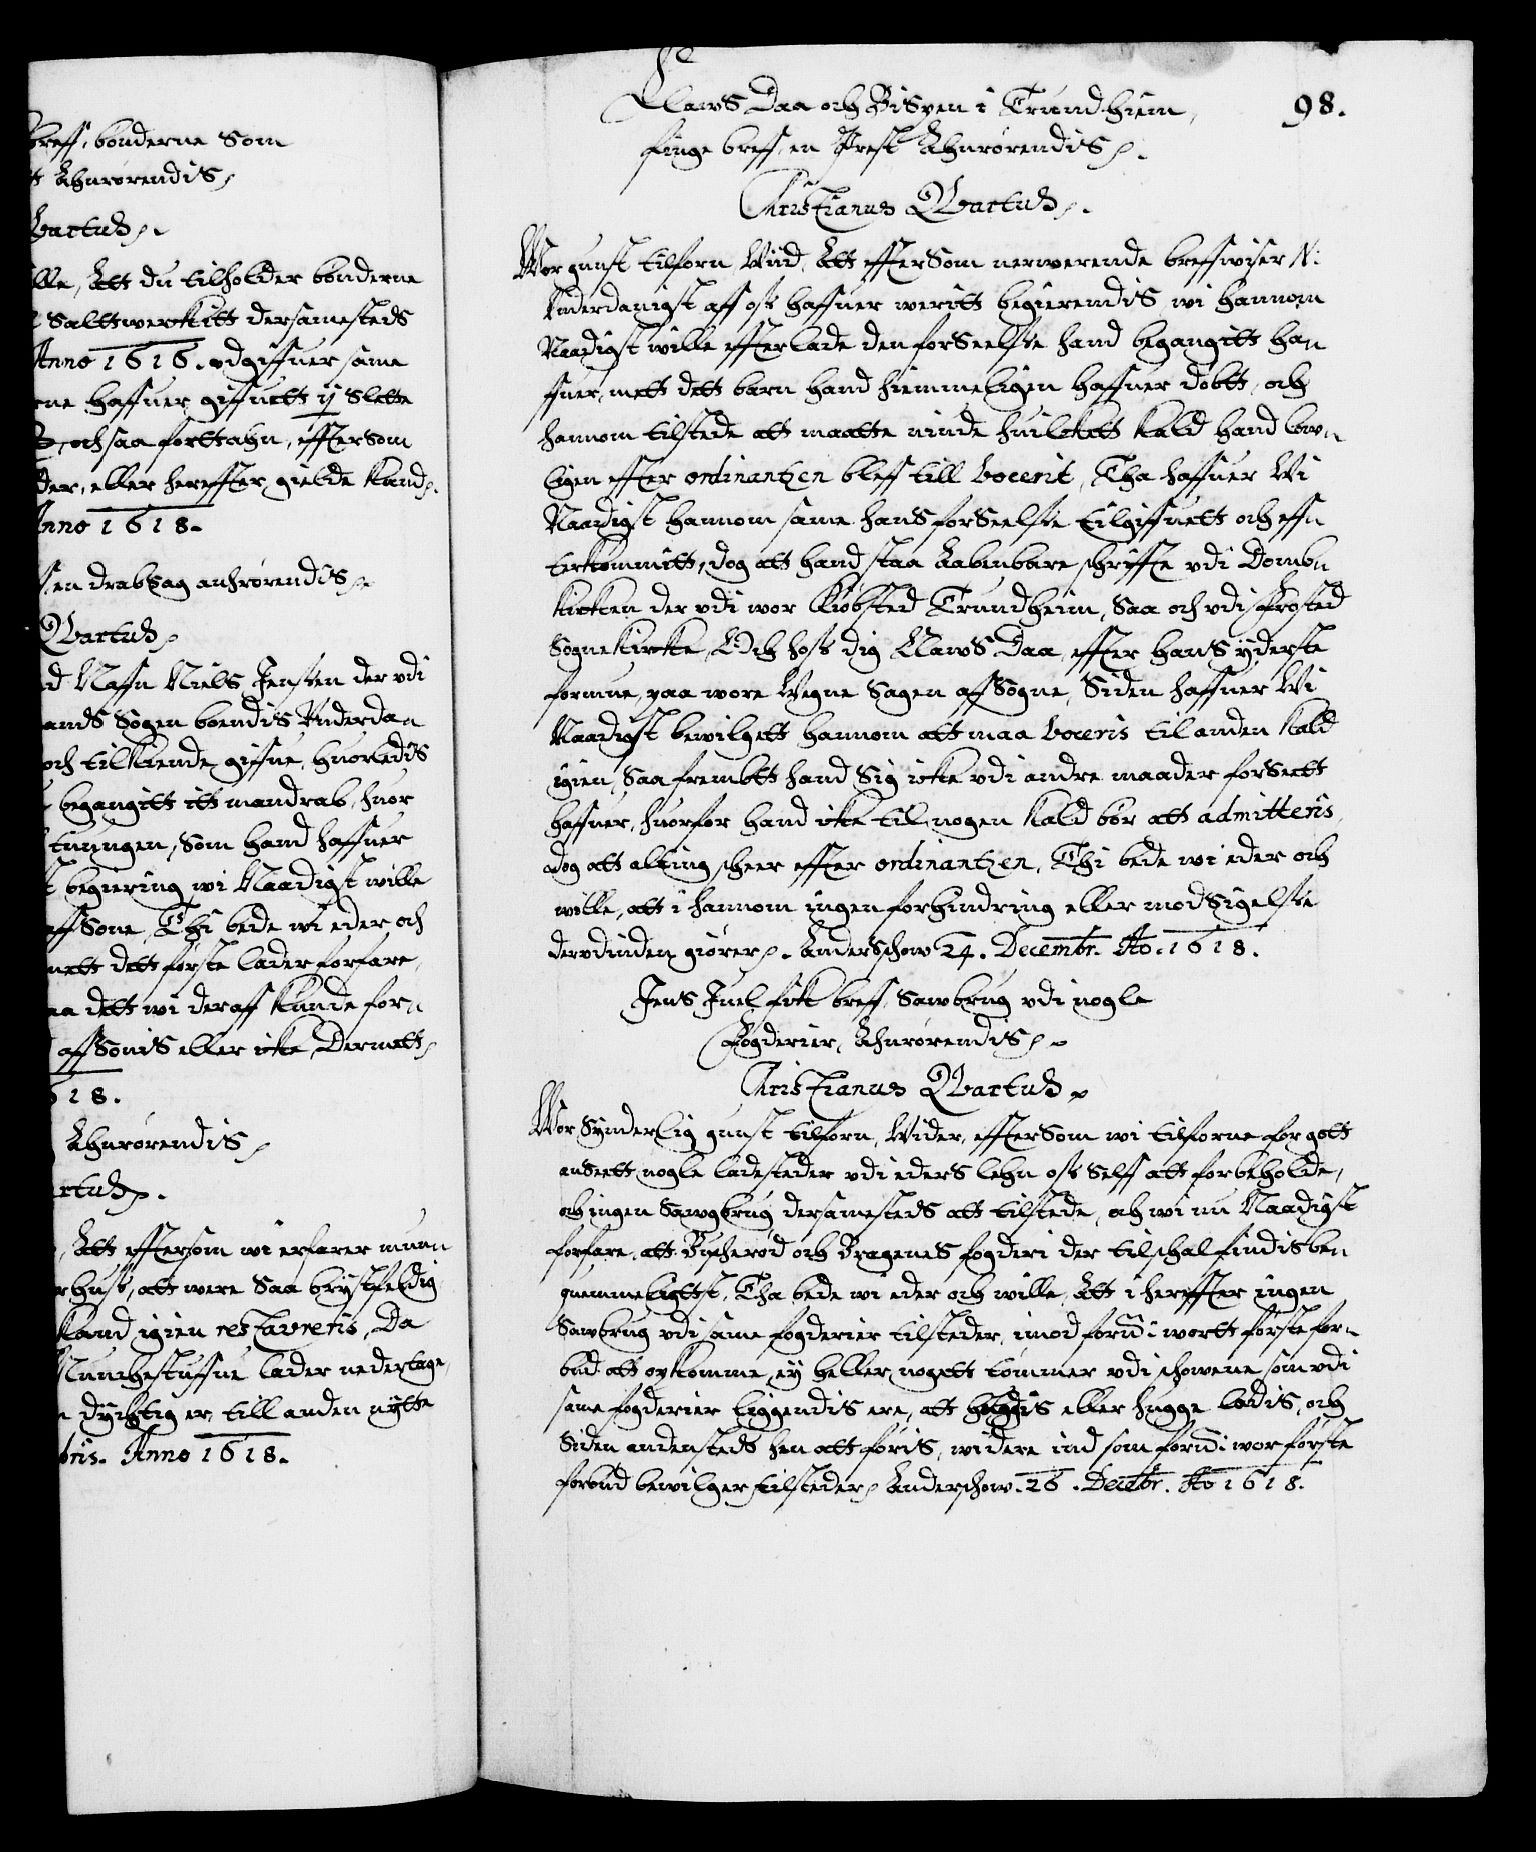 breff, bønderne Som
Ahnrørendis
Qvartus.
ville, Att du tilholder bønderne
Salttwerkitt dersamesteds
Anno 1616. odgiffuer same
haffuer giffuett ij Slette
och saa forttahn, effter som
der, eller hereffter gielde kand.
Anno 1618.
en drabsag anhrørendis
Qvartus
Naffn Niels Jensen der vdi
lands Sogen boendis Vnderda-
och tilkiende giffue, huorledis
begangitt itt mandrab, huor
tuungen, Som hand haffuer
begiering wi Naadigst wille
aff Sone, Thi bede wi eder och
mett dett første lader forfare,
saa dett wi deraff kunde for-
aff Sonis eller icke Dermett
1618.
Ahnrørendis
Qvartus.
Att effttersom wi erfarer muur-
att were Saa brystfeldig
kand igien restavreris, Da
Munchestuffue lader nedertage,
dychtig er till anden nytte
bris. Anno 1618.
98.
Claws Daa och Bispen i Trundhiem,
finge breff, en Prest Ahnrørendis.
Christianus Qvartus.
Wor gunst tilforn, Wiid, Att effter Som nerwerende breffwiser N:
Vnderdanigst aff oss haffuer weritt begierendis, wi hannom
Naadigst wille efterlade den forseelsse hand begangitt ha-
ffuer, mett dett barn hand hiemmeligen haffuer døbt, och
hannom tilstede att maatte niude huilckett kald hand low-
ligen effter ordinantzen bleff till vocerit, Tha haffuer Wi
Naadigst hannom same hans forseelsse tilgiffuett och eff-
terkommitt, dog att hand staa Aabenbare schriffte vdi Domb-
kircken der vdi wor Kiøbsted Trundheim, Saa och vdi Frosted
Sognekircke, Och hoss dig Claws Daa, effter hans yderste
formue, paa wore Wegne Sagen aff Sogne, Siden haffuer Wi
Naadigst bewilgett hannom att maa voceris til anden kald
igien, Saa frembtt hand Sig icke vdi andre maader forseett
haffuer, huorfor hand icke til nogen kald bør att admitteris,
dog att alting scheer effter ordinantzen, Thi bede wi eder och
wille, att i hannom ingen forhindring eller modsigelsse
dervdinden giører. Anderschow 24. Decembr. Ao. 1618.
Jens Juel fick breff, Sawbrug vdi nogle
Fogderier, Ahnrørendis.
Christianus Qvartus.
Wor Synderlig gunst tilforn, Wider, effter Som wi tilforne for gott
anseett nogle ladesteder vdi eders lehn oss Selff att forbeholde,
och ingen Sawgbrug dersamesteds att tilstede, och wi nu Naadigst
forfare, att Buscherød och Bragenes fogderi der til schal findis be-
quemmeligst, Tha bede wi eder och wille, Att i hereffter ingen
Sawbrug vdi same fogderier tilsteder, imod fornd: wortt første for-
bud att opkomme, ey heller nogett tømmer vdi schowene som vdi
same fogderier liggendis ere, att eller hugge ladis, och
Siden andensteds hen att føris, widere ind som fornd: wor første
forbud bewilger tilsteder, Anderschow. 26. Decebr. Ao 1618.